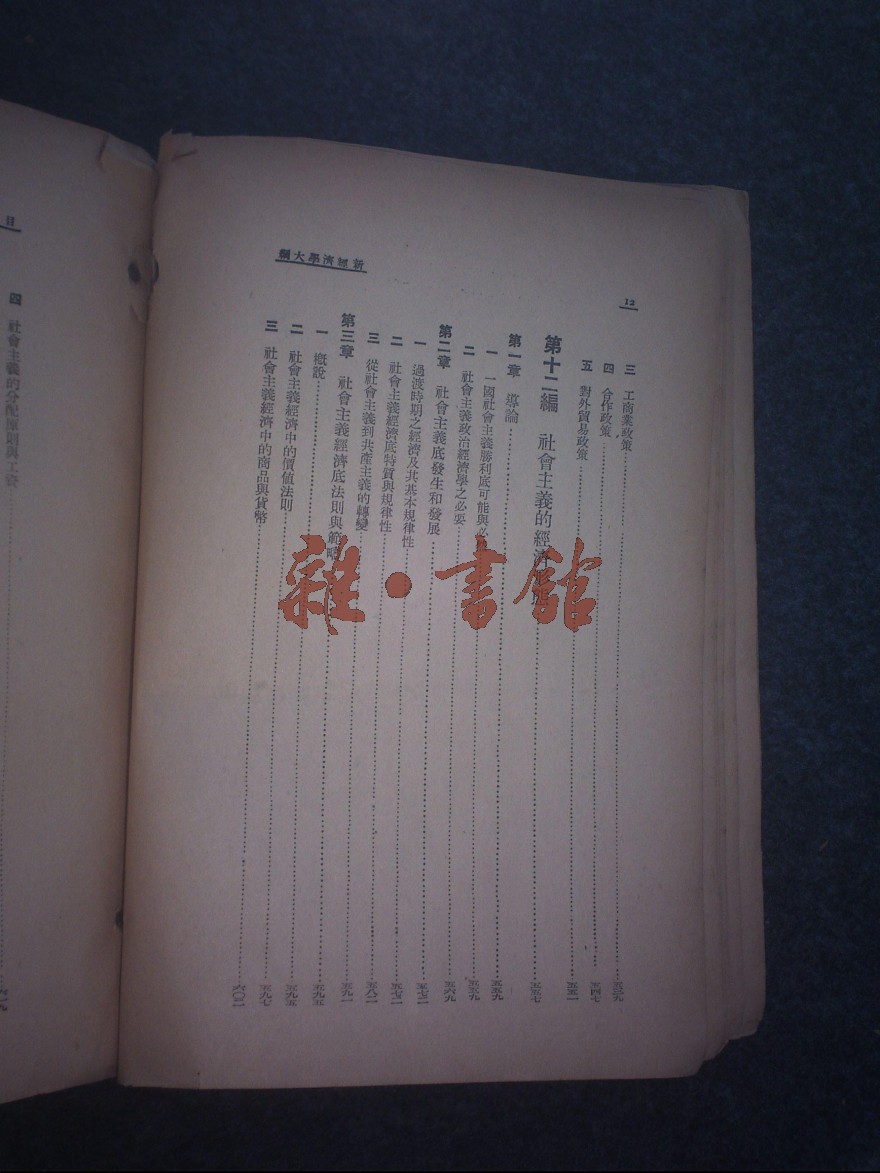 新經濟學大綱
12
三 工商業政策 五三九
四 合作政策 五四七
五 對外貿易政策 五五一
第十二編 社會主義的經濟 五五七
第一章 導論 五五九
一 一國社會主義勝利底可能與必 五五九
二 社會主義政治經濟學之必要 五六九
第二章 社會主義底發生和發展 五七二
一 過渡時期之經濟及其基本規律性 五七二
二 社會主義經濟底特質與規律性 五八二
三 從社會主義到共產主義的轉變 五九一
第三章 社會主義經濟底法則與範疇 五九五
一 概說 五九五
二 社會主義經濟中的價值法則 五九七
三 社會主義經濟中的商品與貨幣 六〇二
目
四 社會主義的分配原則與工資
雜·書館